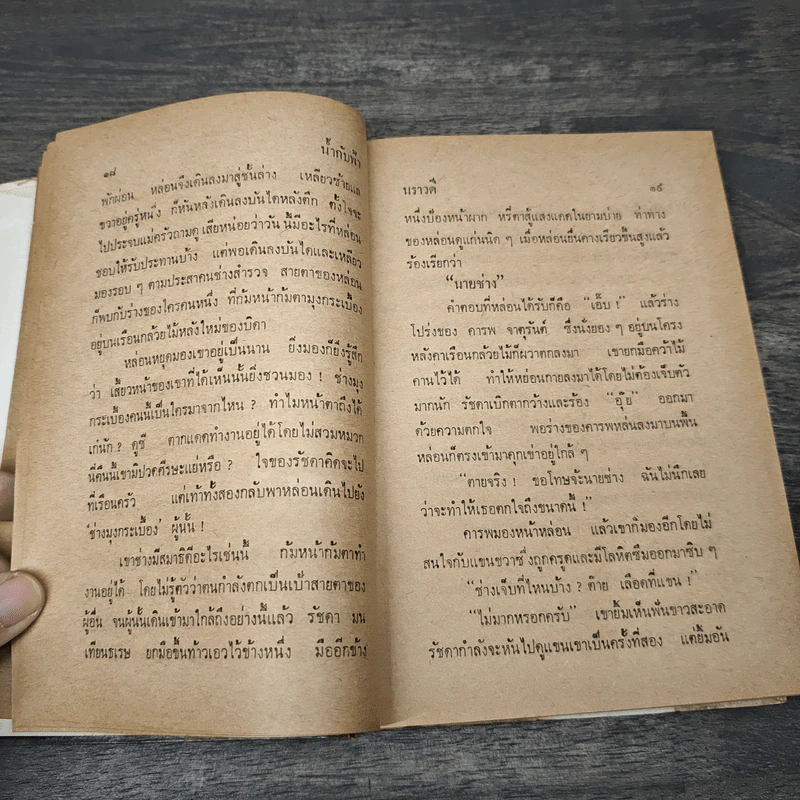 ๑๘
น้ำกับฟ้า
พักผ่อน หล่อนจึงเดินลงมาสู่ชั้นล่าง เหลียวซ้ายแล
ขวาอยู่ครู่หนึ่ง ก็หันหลังเดินลงบันไดหลังตึก ตั้งใจจะ
ไปประจบแม่ครัวถามดู เสียหน่อยว่าวัน นี้มีอะไรที่หล่อน
ชอบให้รับประทานบ้าง แต่พอเดินลงบันไดและเหลียว
มองรอบ ๆ ตามประสาคนช่างสำรวจ สายตาของหล่อน
ก็พบกับร่างของใครคนหนึ่ง ที่ก้มหน้าก้มตามุงกระเบื้อง
อยู่บนเรือนกล้วยไม้หลังใหม่ของบิดา
หล่อนหยุดมองเขาอยู่เป็นนาน ยิ่งมองก็ยิ่งรู้สึก
ว่า เสี้ยวหน้าของเขาที่ได้เห็นนั้นยิ่งชวนมอง ! ช่างมุง
กระเบื้องคนนี้เป็นใครมาจากไหน ? ทำไมหน้าตาถึงได้
เก๋นัก ? ดูซี ตากแดดทำงานอยู่ได้โดยไม่สวมหมวก
นี่คืนนี้เขามิปวดศีรษะแย่หรือ ? ใจของรัชดาคิดจะไป
ที่เรือนครัว แต่เท้าทั้งสองกลับพาหล่อนเดินไปยัง
‘ช่างมุงกระเบื้อง’ ผู้นั้น !
เขาช่างมีสมาธิดีอะไรเช่นนี้ ก้มหน้าก้มตาทำ
งานอยู่ได้ โดยไม่รู้ตัวว่าตนกำลังตกเป็นเป้าสายตาของ
ผู้อื่น จนผู้นั้นเดินเข้ามาใกล้ถึงอย่างนี้แล้ว รัชดา มน
เทียนธเรษ ยกมือขึ้นท้าวเอวไว้ข้างหนึ่ง มืออีกข้าง
นราวดี
๑๙
หนึ่งป้องหน้าผาก หรี่ตาสู้แสงแดดในยามบ่าย ท่าทาง
ของหล่อนดูแก่นนิด ๆ เมื่อหล่อนยื่นคางเรียวขึ้นสูงแล้ว
ร้องเรียกว่า
“นายช่าง”
คำตอบที่หล่อนได้รับก็คือ “เอ๊บ !” แล้วร่าง
โปร่งของ คารพ จาตุรันต์ ซึ่งนั่งยอง ๆ อยู่บนโครง
หลังคาเรือนกล้วยไม้ก็ผวาตกลงมา เขายกมือคว้าไม้
คานไว้ได้ ทำให้หย่อนกายลงมาได้โดยไม่ต้องเจ็บตัว
มากนัก รัชดาเบิกตากว้างและร้อง “อุ๊ย” ออกมา
ด้วยความตกใจ พอร่างของคารพหล่นลงมาบนพื้น
หล่อนก็ตรงเข้ามาคุกเข่าอยู่ใกล้ ๆ
“ตายจริง ! ขอโทษจ้ะนายช่าง ฉันไม่นึกเลย
ว่าจะทำให้เธอตกใจถึงขนาดนี้ !”
คารพมองหน้าหล่อน แล้วเขาก็มองอีกโดยไม่
สนใจกับแขนขวาซึ่งถูกครูดและมีโลหิตซึมออกมาซิบ ๆ
“ช่างเจ็บที่ไหนบ้าง ? ต๊าย เลือดที่แขน !”
“ไม่มากหรอกครับ” เขายิ้มเห็นฟันขาวสะอาด
รัชดากำลังจะหันไปดูแขนเขาเป็นครั้งที่สอง แต่ยิ้มอัน